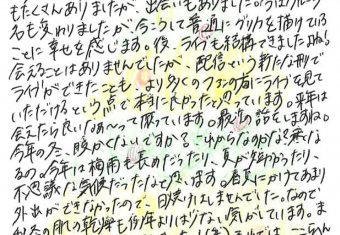 もたくさんありましたが、出会いもありました。今はグループ
名も変わりましたが、今こうして普通にグリクを捕けている
ことに幸せを感じます。後、ライブも結構できましたよね!
会えることはありませんでしたが、配信という新たな形で
ライブができたことも、より多くのファンの方にライブを見て
いただけるという点で本当に良かったと思っています。来年は
会えたら良いなぁ〜って願っています。
今年の冬、暖かくないですか?これからなのかな寒くな
るの。今年は梅雨も長めだったり、夏が短かったり、
不思議な気候だったなと思います。春夏にかけてあまり
外出ができなかったので、日焼けはしませんでした。なので
肌の乾燥も例年よりはない気がしています。ま